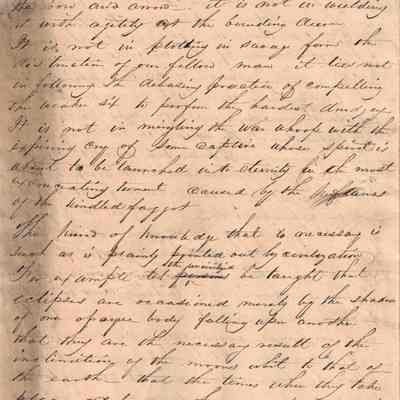 the bow and arrow. it is not in wielding
it with agility at the bounding deer
It is not in plotting in savage form the
destruction of our fellow man it lies not
in following the debasing practice of compelling
the weaker sex to perform the hardest drudgery
It is not in mingling the war whoop with the
expiring cry of some captive whose spirit is
about to be launched into eternity in the most
excruciating torment caused by the
of the kindled faggot
The kind of knowledge that is necessary is
such as is plainly pointed out by civilization
For example let be taught that
eclipses are occasioned merely by the shadow
of one opaque body falling upon another
that they are the necessary result of the
inclination of the moons orbit to that of
the earth that the times when they take